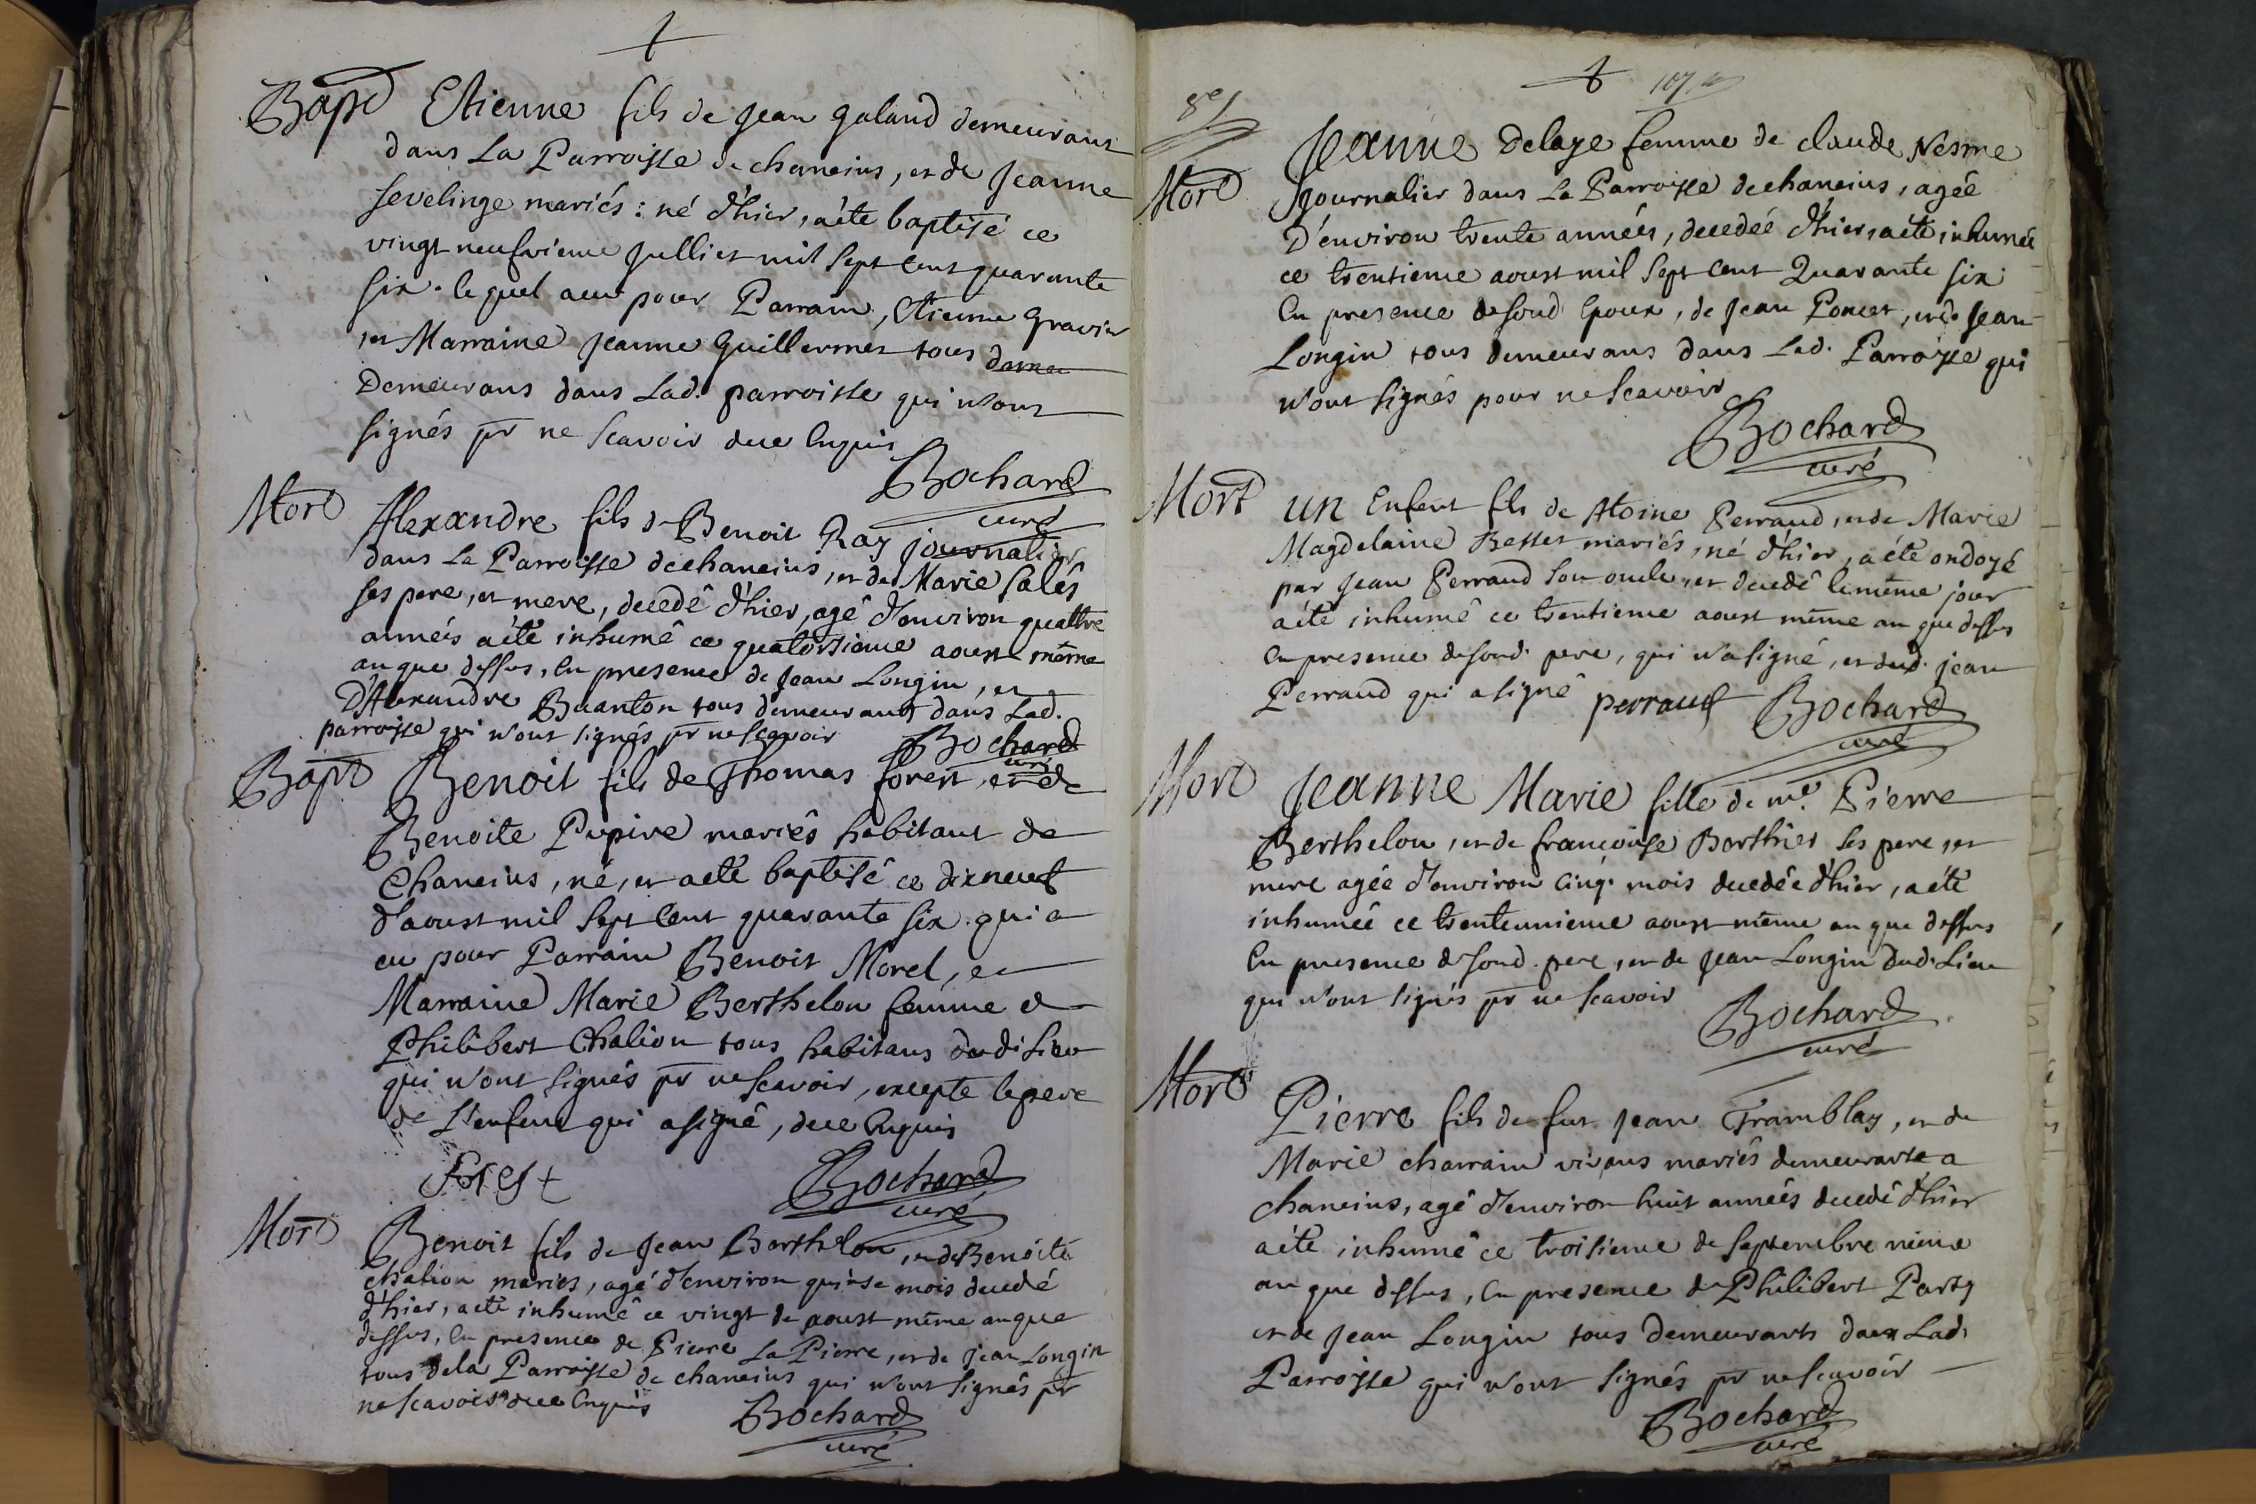 Bapt Etienne fils de Jean Galand demeurans
dans La Parroisse de chaneins, et de Jeanne
sevelinge mariés : né d'hier, aété baptisé ce
vingt neufvieme Julliet mil sept cent quarante
six. lequel aeu pour Parrain, Etienne Gravier
et Marraine Jeanne Guillermet tous demeu
Demeurans dans Lad. parroisse qui n'ont
signés pr ne scavoir dece Enquis
Bochard
curé
Mort Alexandre fils de Benoit Ray journalier
dans La Parroisse dechaneins, et de Marie Salés
ses pere, et mere, decedé d'hier, agé d'environ quattre
années aété inhumé ce quatorsieme aoust même
an que dessus, En presence de Jean Longin, et
D'Alexandre Buanton tous demeurants dans Lad.
parroisse qui n'ont signés pr ne scavoir
Bochard
curé
Bapt Benoit fils de Thomas forest, et de
Benoite Pupive mariés habitant de
Chaneins, né, et aeté baptisé ce dixneuf
d'aoust mil sept Cent quarante six. qui a
eu pour Parrain Benoit Morel, et
Marraine Marie Berthelon femme de
Philibert Chalion tous habitans dudi. Lieu
qui n'ont signés pr ne scavoir, excepte le pere
de L'enfent qui asigné, dece Enquis
Forest
Bochard
curé
Mort Benoit fils de Jean Berthelon, et de Benoite
chalion mariés, agé d'environ quinse mois decedé
d'hier, aété inhumé ce vingt de aoust même an que
dessus, En presence de Pierre La Pierre, et de Jean Longin
tous de la Parroisse de chaneins qui n'ont signés pr
ne scavoir dece Enquis
Bochard
curé
Jeanne Delaye femme de claude Nesme
Mort Journalier dans La Parroisse dechaneins, agée
D'environ trente années, decedée d'hier, aété inhumée
ce trentieme aoust mil sept Cent Quarante six
En presence de sond Epoux, de Jean Poncet, et de Jean
Longin tous demeurans dans Lad. Parroisse qui
n'ont signés pour ne scavoir
Bochard
curé
Mort Un Enfent fils de Atoine Perraud, et de Marie
Magdelaine Besset mariés, né d'hier, a été ondoyé
par Jean Perraud son oncle, et decedé le même jour
aété inhumé ce trentieme aoust même an que dessus
En presence de sond. pere, qui n'a signé, et dud. jean
Perraud qui a signé perraud Bochard
curé
Mort Jeanne Marie fille de me. Pierre
Berthelon, et de françoise Berthier ses pere, et
mere agée d'environ Cinq. mois decedée d'hier, a été
inhumée ce trenteunieme aoust même an que dessus
En presence de sond. pere, et de Jean Longin dud. Lieu
qui n'ont signés pr ne scavoir
Bochard
curé
Mort
Pierre fils de fut Jean Tramblay, et de
Marie charrain vivans mariés demeurants a
chaneins, agé d'environ huit années decedé d'hier
aété inhumé ce troisieme de septembre même
an que dessus, En presence de Philibert Party
et de Jean Longin tous demeurants dans Lad.
Parroisse qui n'ont signés pr ne scavoir
Bochard
curé